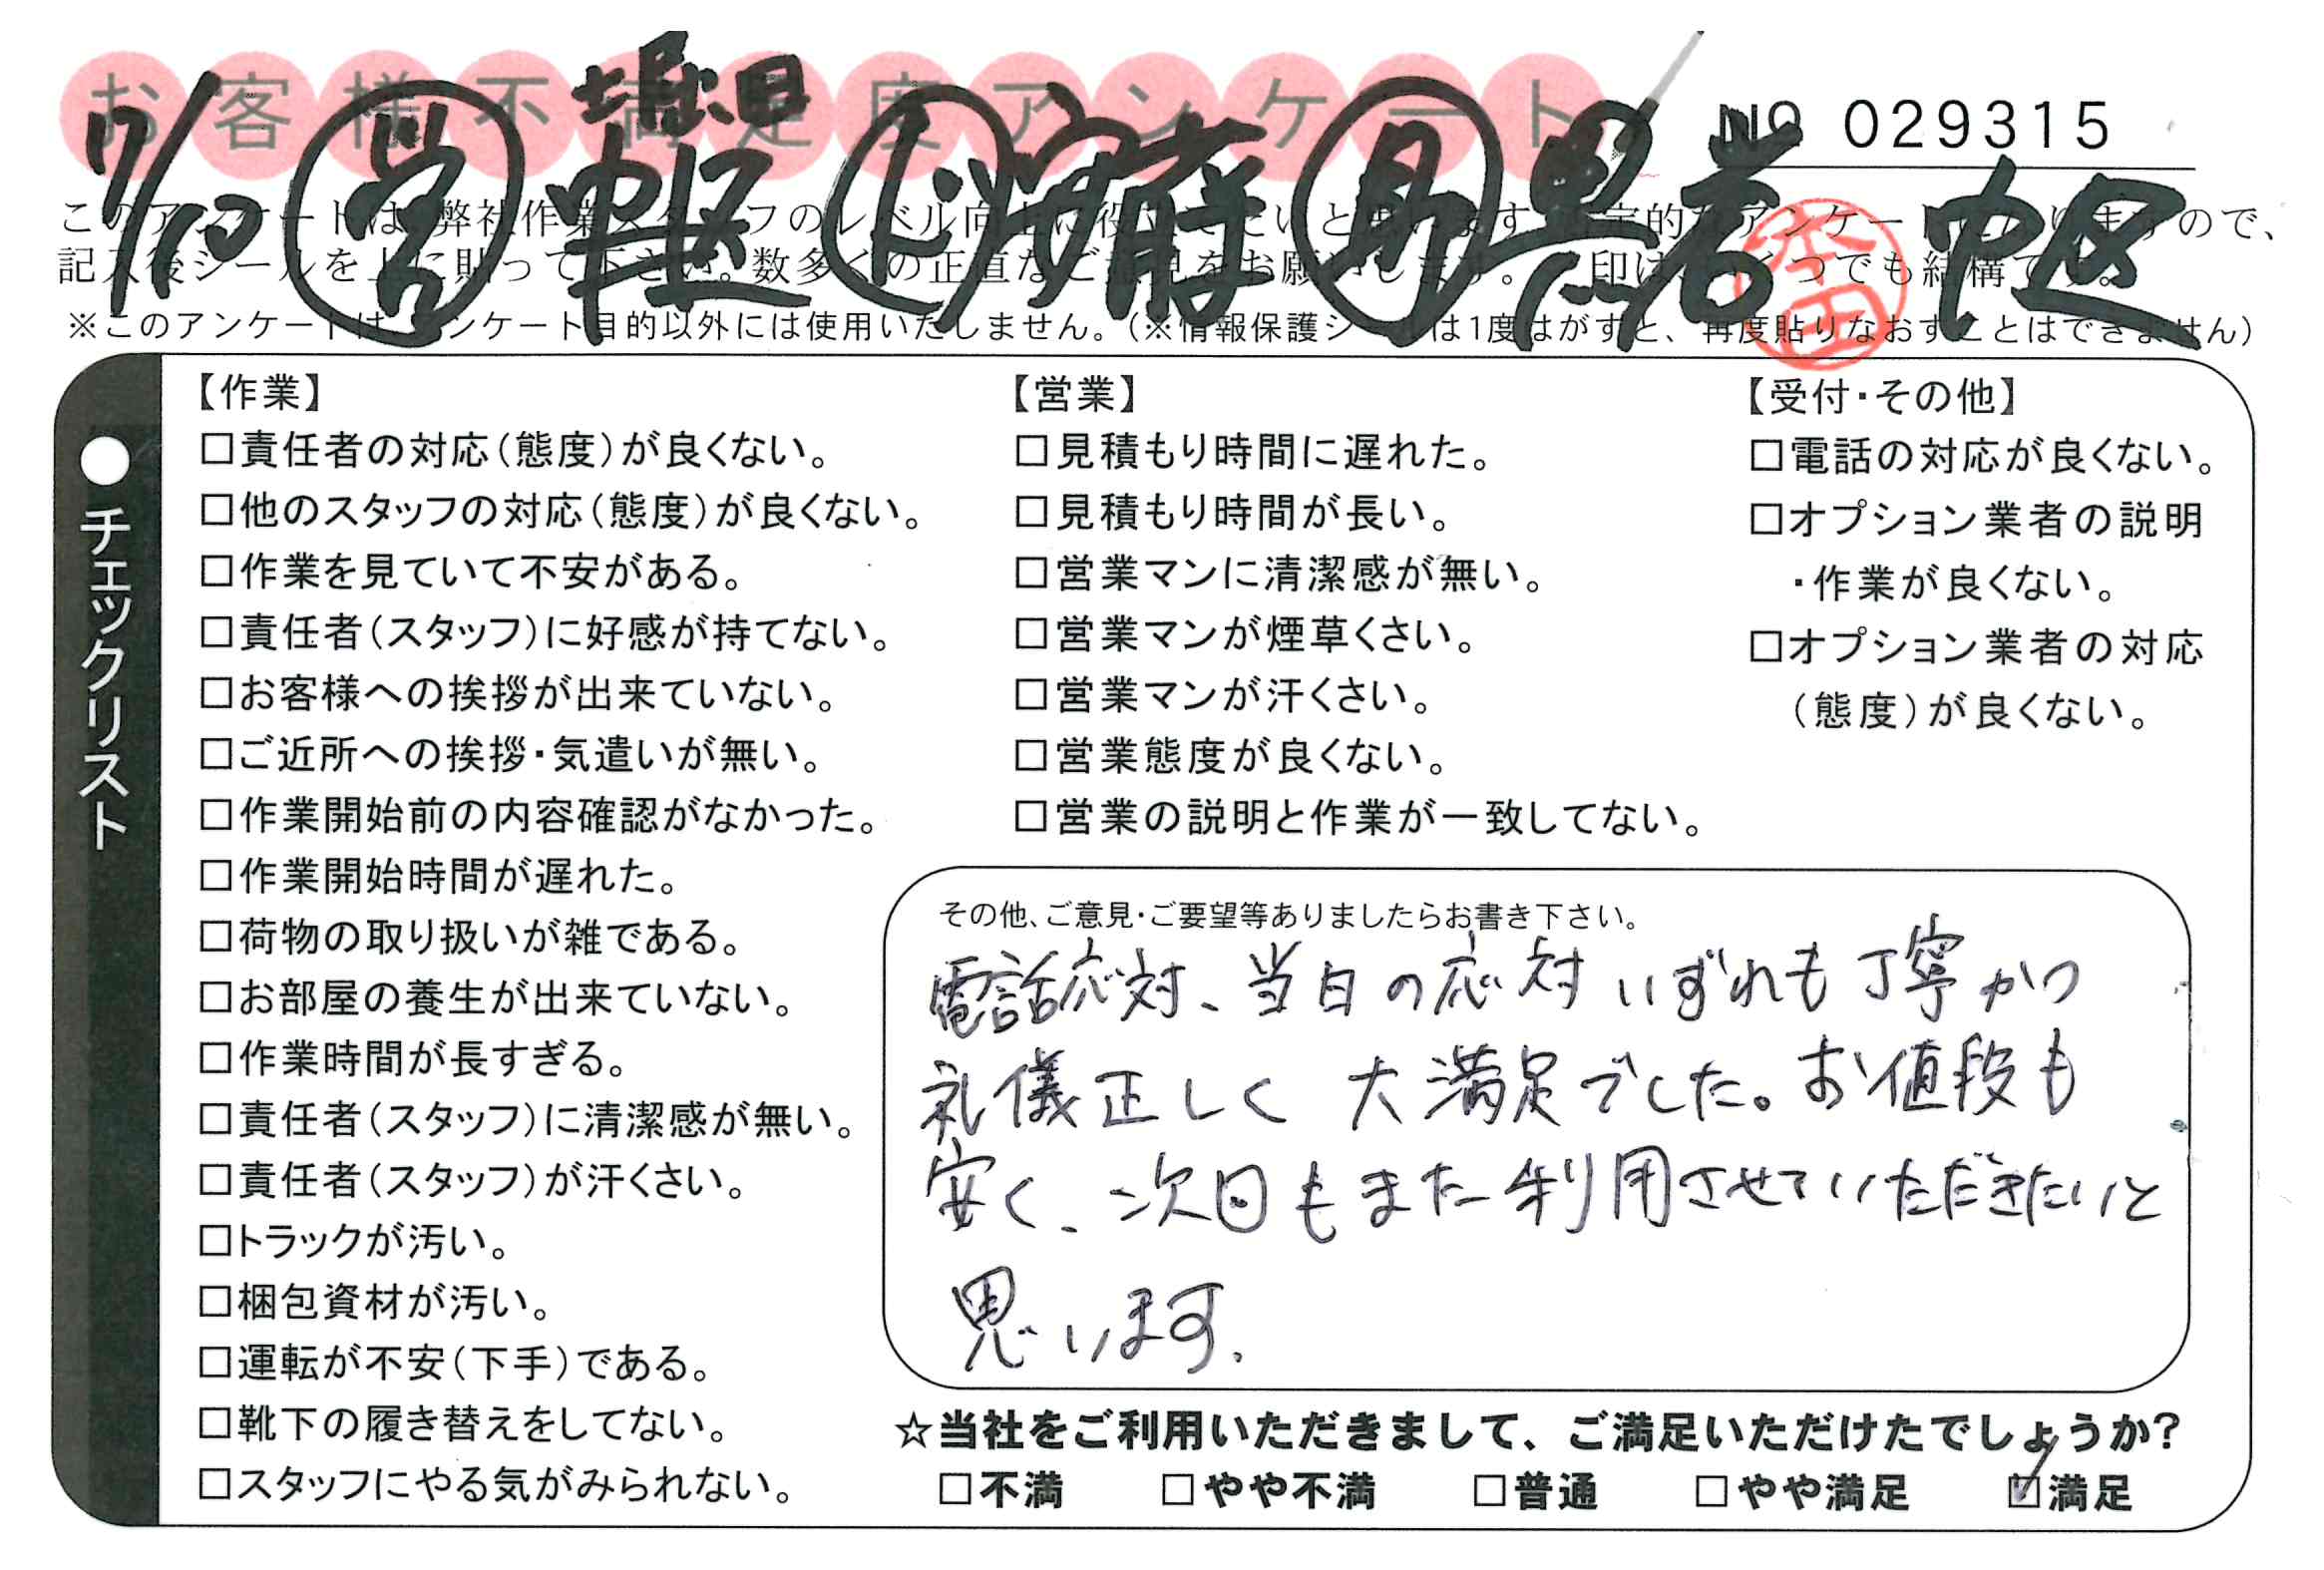 お客様不満足度アンケート
NO 029315
7/10 営 堀田 中区 ド 助 中区
本田
このアンケートは、弊社作業スタッフのレベル向上に役立てたいと思います。 アンケート ますので、
記入後シールを上に貼って下さい。数多くの正直なご意見をお願いします。 印はいくつでも結構です。
※このアンケートは、アンケート目的以外には使用いたしません。(※情報保護シールは1度はがすと、再度貼りなおすことはできません)
●チェックリスト
【作業】
□責任者の対応(態度)が良くない。
□他のスタッフの対応(態度)が良くない。
□作業を見ていて不安がある。
□責任者(スタッフ)に好感が持てない。
□お客様への挨拶が出来ていない。
□ご近所への挨拶・気遣いが無い。
□作業開始前の内容確認がなかった。
□作業開始時間が遅れた。
□荷物の取り扱いが雑である。
□お部屋の養生が出来ていない。
□作業時間が長すぎる。
□責任者(スタッフ)に清潔感が無い。
□責任者(スタッフ)が汗くさい。
□トラックが汚い。
□梱包資材が汚い。
□運転が不安(下手)である。
□靴下の履き替えをしてない。
□スタッフにやる気がみられない。
【営業】
□見積もり時間に遅れた。
□見積もり時間が長い。
□営業マンに清潔感が無い。
□営業マンが煙草くさい。
□営業マンが汗くさい。
□営業態度が良くない。
□営業の説明と作業が一致してない。
【受付・その他】
□電話の対応が良くない。
□オプション業者の説明
・作業が良くない。
□オプション業者の対応
(態度)が良くない。
その他、ご意見・ご要望等ありましたらお書き下さい。
電話応対、当日の応対いずれも丁寧かつ
礼儀正しく大満足でした。お値段も
安く、次回もまた利用させていただきたいと
思います。
☆当社をご利用いただきまして、ご満足いただけたでしょうか?
□不満 □やや不満 □普通 □やや満足 ☑満足